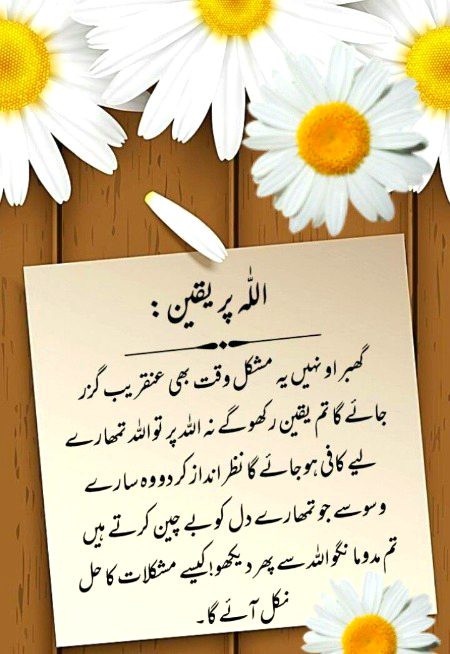 اللہ پر یقین :
گھبراو نہیں یہ مشکل وقت بھی عنقریب گزر
جائے گا تم یقین رکھو گے نہ اللہ پر تو اللہ تمھارے
لیے کافی ہو جائے گا نظر انداز کر دو وہ سارے
وسوسے جو تمھارے دل کو بے چین کرتے ہیں
تم مدد مانگو اللہ سے پھر دیکھو! کیسے مشکلات کا حل
نکل آئے گا۔